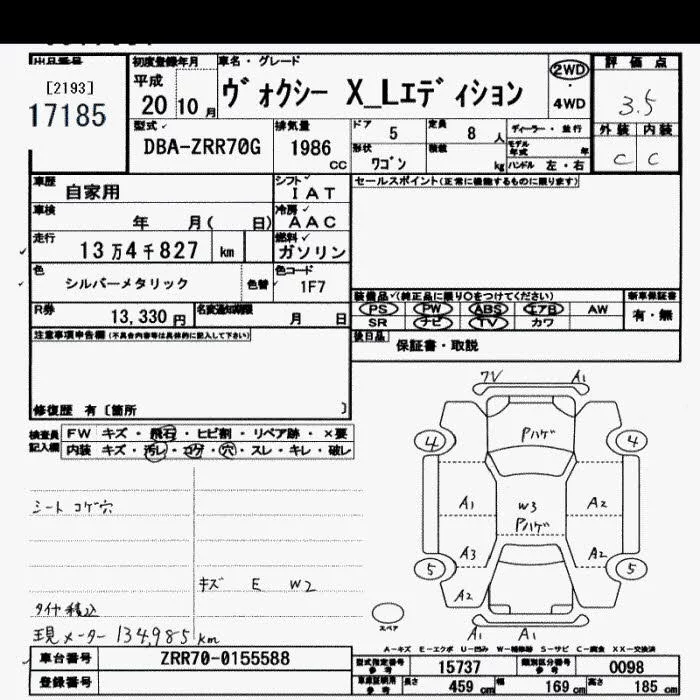 出品番号
[2193]
17185
初度登録年月
平成
20 10 月
車名・グレード
ヴォクシー X_Lエディション
2WD
・
4WD
評価点
3.5
外装 内装
C C
型式
DBA-ZRR70G
排気量
1986
CC
ドア 5
定員 8 人
形状
ワゴン
積載
kg
ディーラー・並行
モデル年式 年
ハンドル 左・右
車歴
自家用
シフト
IAT
セールスポイント(正常に機能するものに限ります)
車検
年 月( 日)
冷房
AAC
走行
13万4千827 km
燃料
ガソリン
色
シルバーメタリック
色替
色コード
1F7
R券
13,330 円
名変通知期限
月 日
装備品 (純正品に限り〇をつけてください)
PS PW ABS エアB AW
SR ナビ TV カワ
新車保証書
有・無
後日品
保証書・取説
注意事項申告欄(不具合内容等は具体的に記入して下さい)
修復歴 有〔箇所 〕
検査員記入欄
FW キズ・飛石・ヒビ割・リペア跡・×要
内装 キズ・汚レ・コゲ・穴・スレ・キレ・破レ
シート コゲ穴
キズ E W2
タイヤ積込
現メーター 134,985 km
7V A1
Pハゲ
4 4
A1 W3 A2
Pハゲ
A3 A2
5 5
A2
A1 A1
スペア
A-キズ E-エクボ U-凹み W-補修跡 S-サビ C-腐食 XX-交換済
車台番号 ZRR70-0155588
登録番号
型式指定番号 参考 15737
類別区分番号 参考 0098
車庫証明用 参考
長さ 459 cm
幅 169 cm
高さ 185 cm